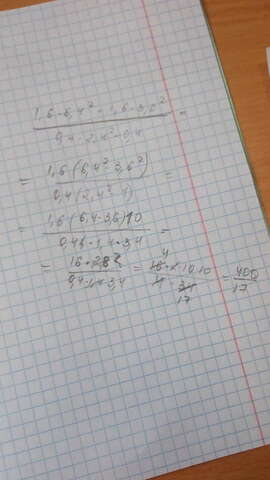 1,6·6,4² - 1,6·3,6²
0,4·2,4² - 0,4
=
= 1,6·(6,4²-3,6²)
0,4(2,4²-1)
=
= 1,6·(6,4-3,6)10
0,4·1,4·3,4
=
= 16·2,8
0,4·1,4·3,4
= 10·10
17
= 400
17